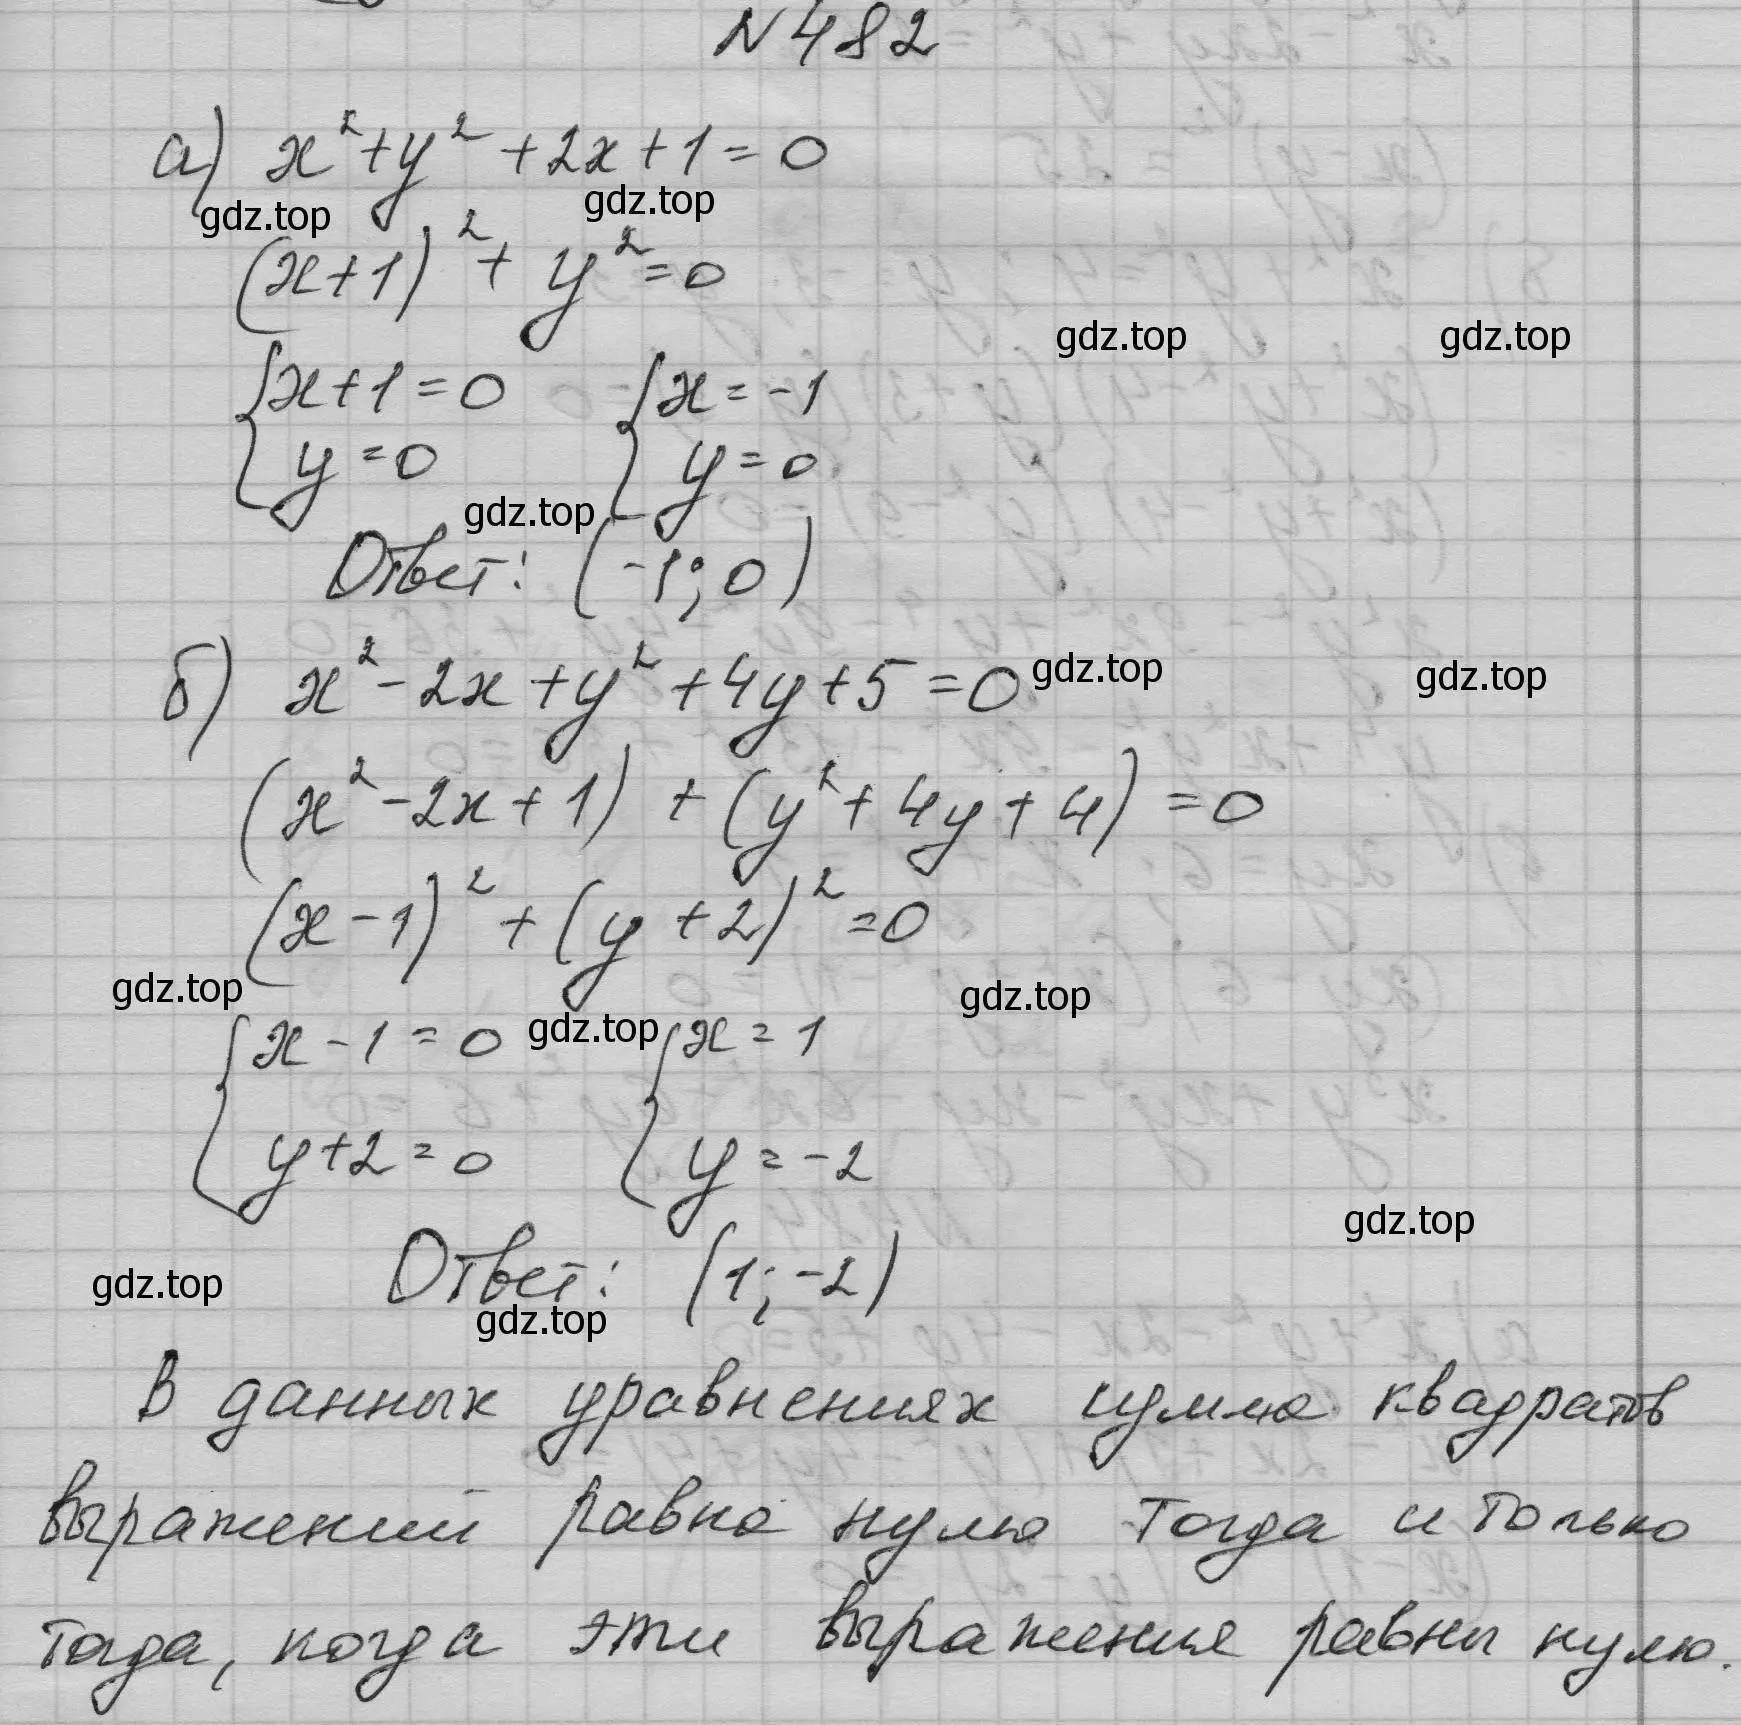 N 482
а) x² + y² + 2x + 1 = 0
gdz.top gdz.top
(x+1)² + y² = 0
gdz.top gdz.top
{ x+1=0 { x=-1
y=0 y=0
gdz.top
Ответ: (-1; 0)
б) x² - 2x + y² + 4y + 5 = 0 gdz.top gdz.top
(x² - 2x + 1) + (y² + 4y + 4) = 0
(x - 1)² + (y + 2)² = 0
gdz.top gdz.top
{ x - 1 = 0 gdz.top { x = 1
y+2=0 y = -2
gdz.top
gdz.top Ответ: (1; -2)
gdz.top
В данных уравнениях сумма квадратов
выражений равна нулю тогда и только
тогда, когда эти выражения равны нулю.